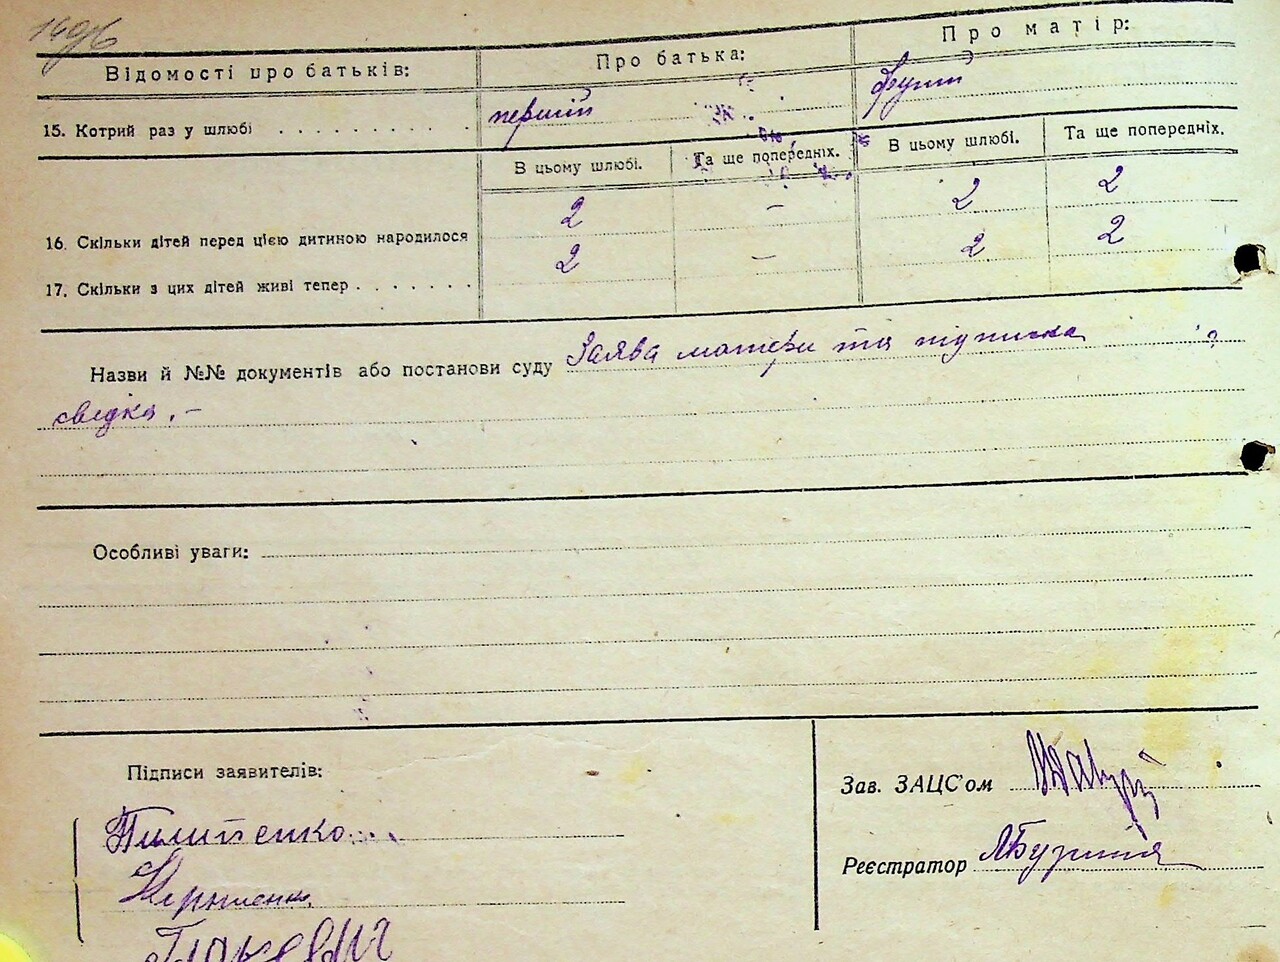 1496
Відомості про батьків:
Про батька:
Про матір:
15. Котрий раз у шлюбі . . . . . . . . . .
перший
другий
В цьому шлюбі.
Та ще попередніх.
В цьому шлюбі.
Та ще попередніх.
16. Скільки дітей перед цією дитиною народилося
2
–
2
2
17. Скільки з цих дітей живі тепер . . . . . . .
2
–
2
2
Назви й №№ документів або постанови суду Заява матери та підписка
свідка.–
Особливі уваги:
Підписи заявителів:
Зав. ЗАЦС'ом
Пилипенко
Реєстратор